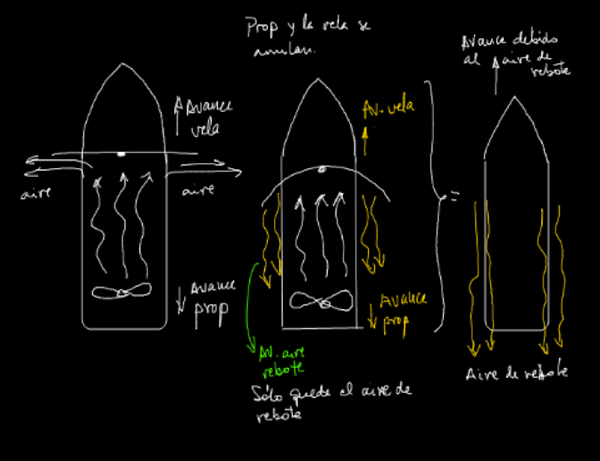 Prop y la vela se
anulan.
Avance debido
al aire de
rebote
Avance
vela
Av. vela
aire
aire
=
Avance
prop
Avance
prop
Av. aire
rebote
Aire de rebote
Sólo quede el aire de
rebote